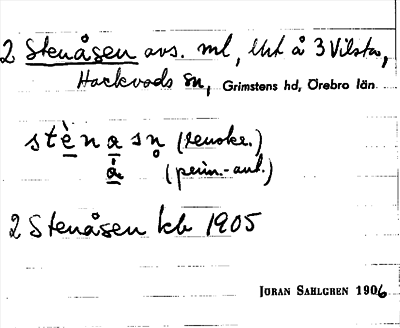 2 Stenåsen avs. ml, Utt å 3 Vilsta,
Hackvads sn, Grimstens hd, Örebro län
stè̱na̱sn̥ (senske.)
å̱ (pers.-aut.)
2 Stenåsen kb 1905
JÖRAN SAHLGREN 1906